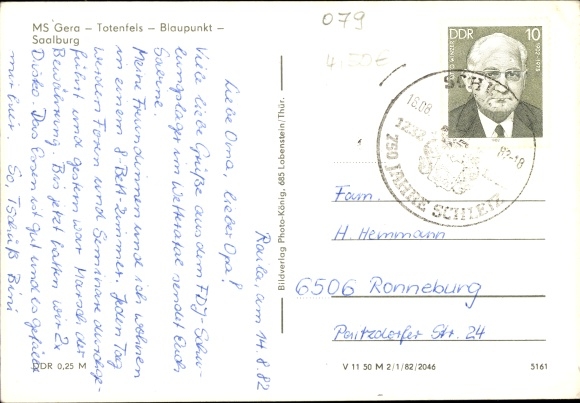 MS Gera – Totenfels – Blaupunkt –
Saalburg
079
4,50€
DDR 10
1982
16.08.
82-18
1232
750 JAHRE SCHLEIZ
Raila, am 14.8.82
Liebe Oma, lieber Opa!
Viele liebe Grüße aus dem FDJ-Schu-
lungslager im Wettratal sendet Euch
Sabine.
Meine Freundinnen und ich wohnen
in einem 8-Bett-Zimmer. Jeden Tag
werden Foren und Seminare durchge-
führt und gestern war Marsch der
Bewährung. Bis jetzt hatten wir 2x
Disko. Das Essen ist gut und es gefällt
mir hier. So, Tschüß Bini
Bildverlag Photo-König, 685 Lobenstein/Thür.
Fam.
H. Hemmann
6506 Ronneburg
Paitzdorfer Str. 24
DDR 0,25 M
V 11 50 M 2/1/82/2046
5161